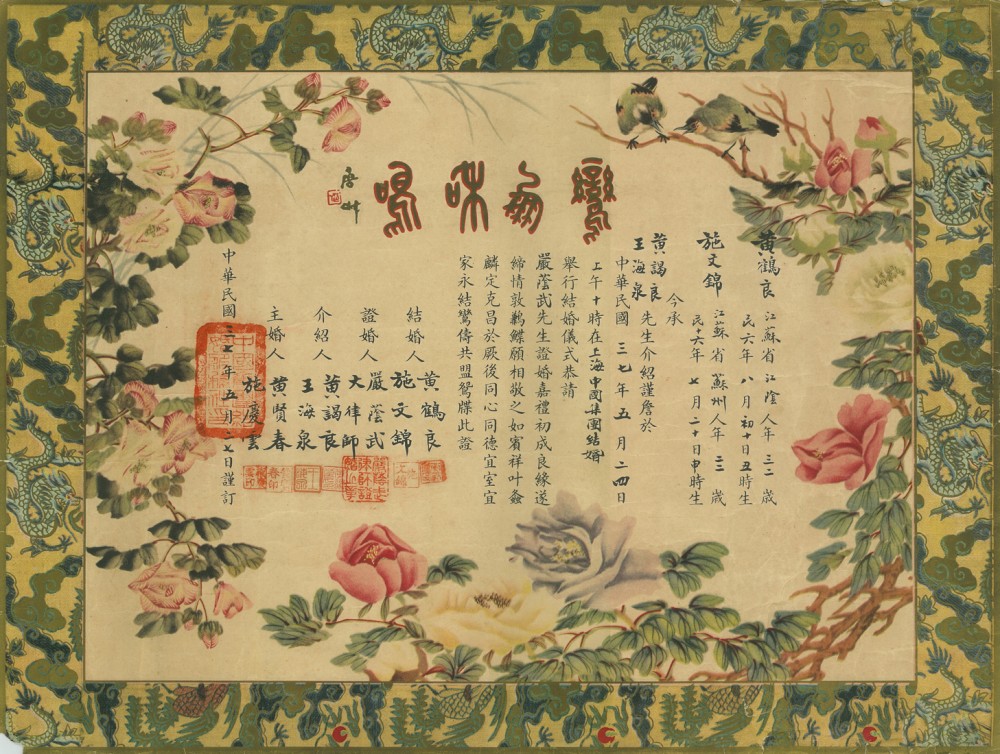 鸞鳳和鳴
黃鶴良 江蘇省江陰人年三二歲
民六年八月初十日丑時生
施文錦 江蘇省蘇州人年二三歲
民十六年七月二十日申時生
今承
黃謁良
王海泉 先生介紹謹詹於
中華民國三七年五月二四日
上午十時在上海中國集團結婚
舉行結婚儀式恭請
嚴蔭武先生證婚嘉禮初成良緣遂
締情敦鶼鰈願相敬之如賓祥叶螽
麟定克昌於厥後同心同德宜室宜
家永結鸞儔共盟鴛牒此證
結婚人 黃鶴良
施文錦
證婚人 嚴蔭武
大律師
介紹人 黃謁良
王海泉
主婚人 黃賢春
施慶雲
中華民國三七年五月二七日謹訂